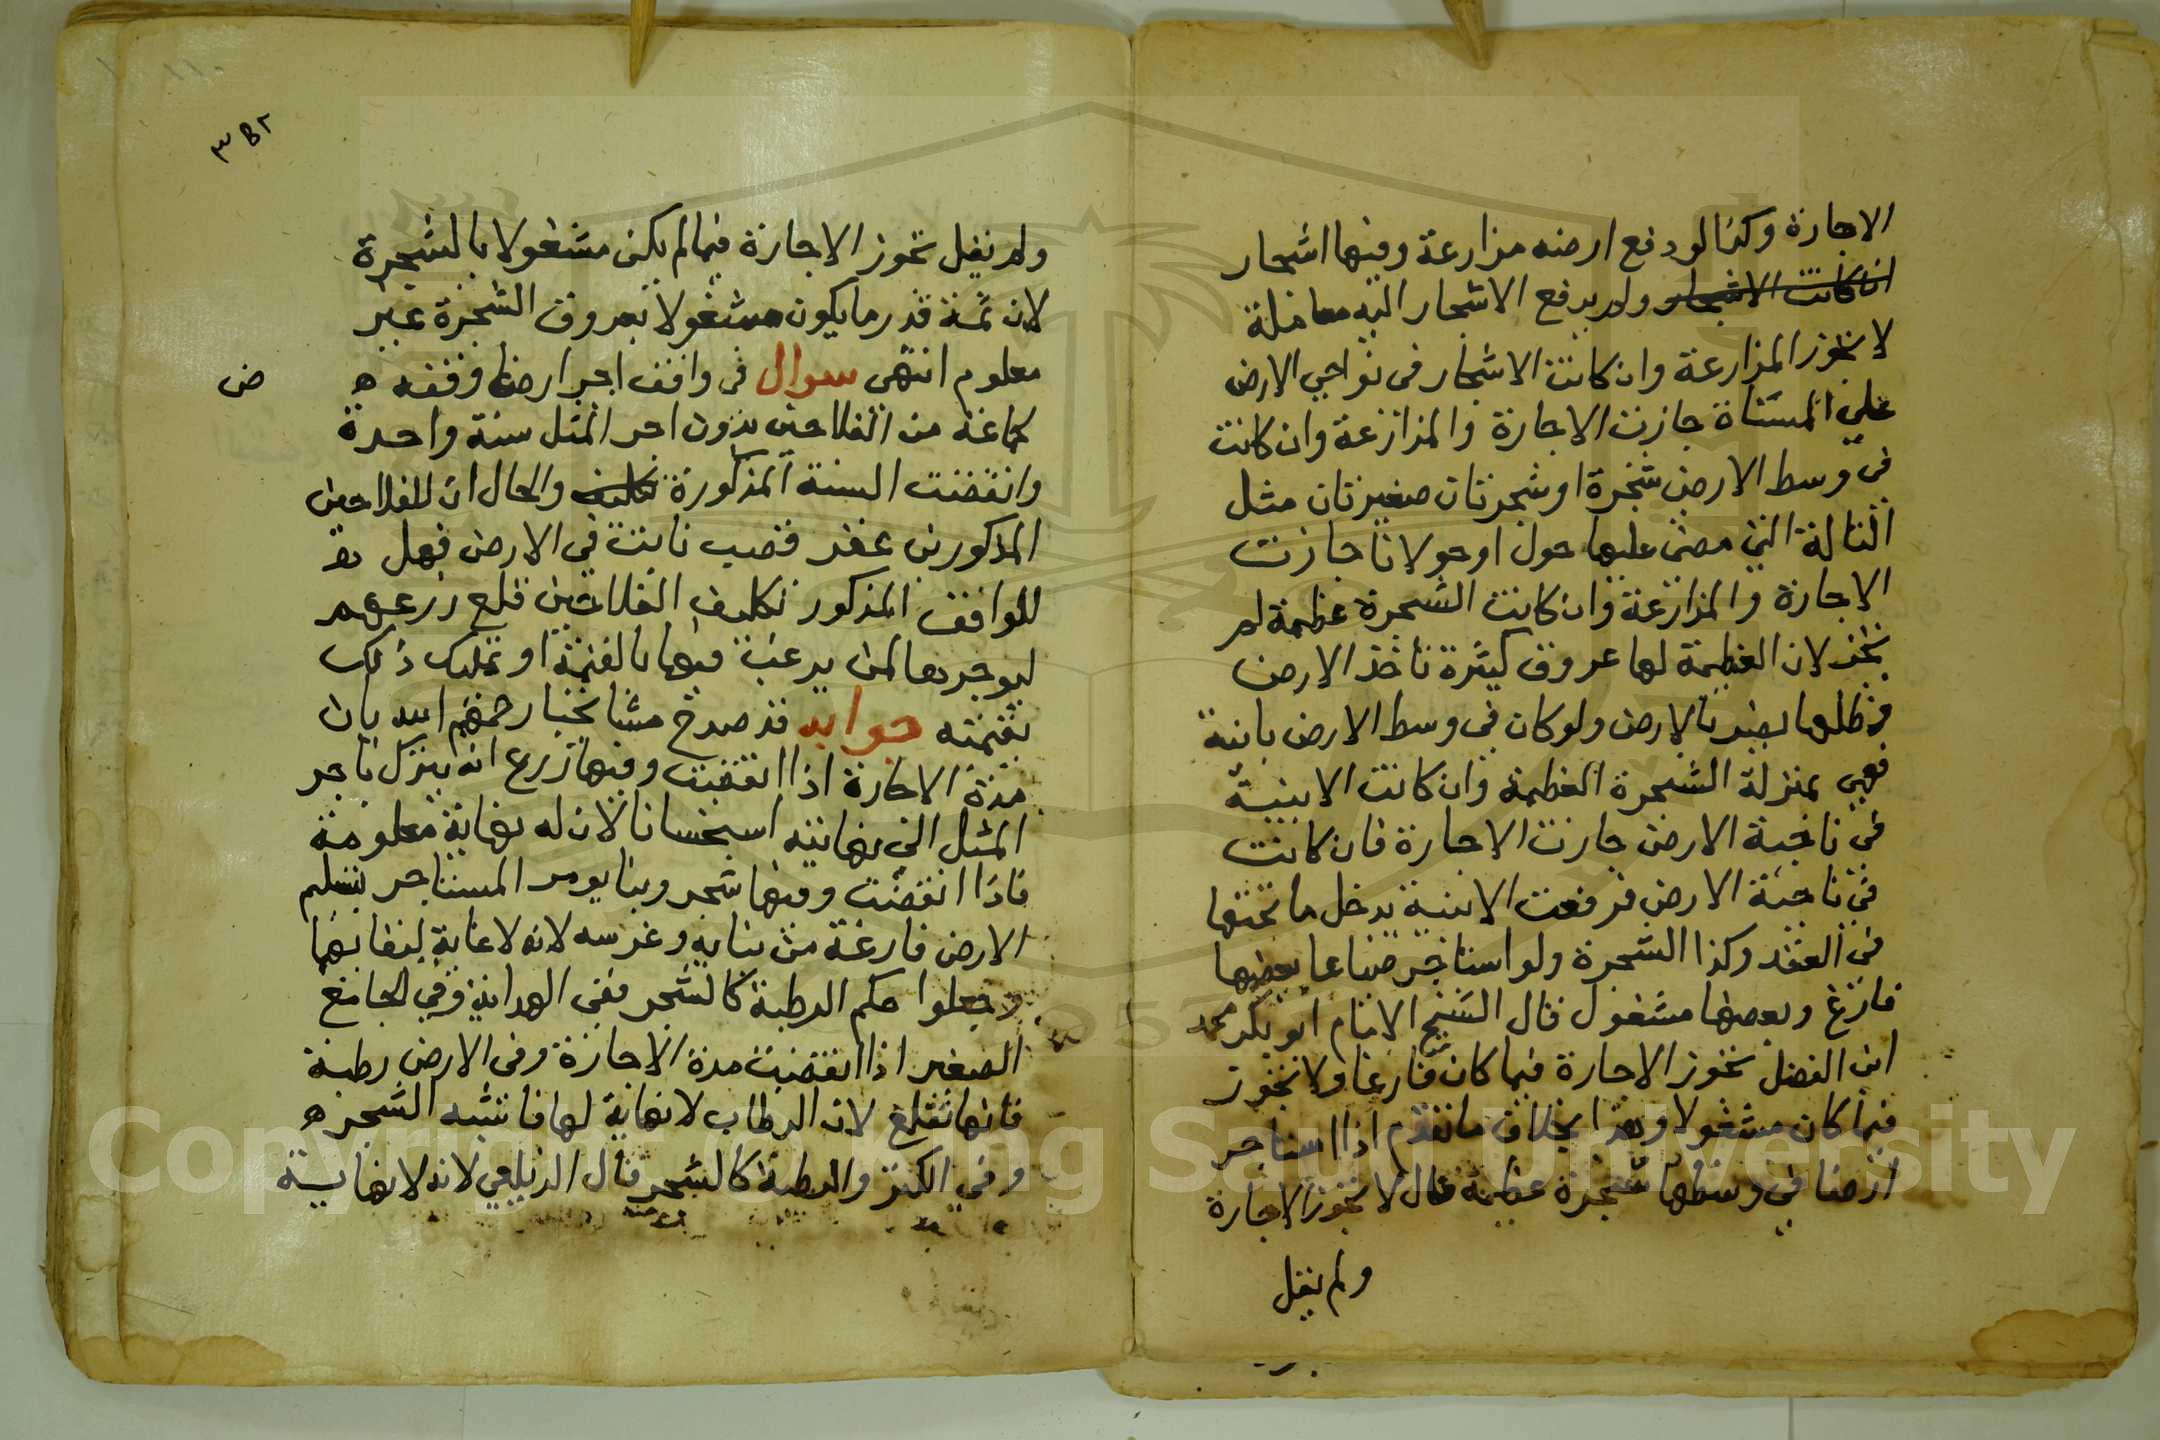 الاجارة وكذا لو دفع ارضه مزارعة وفيها اشجار
ان كانت الاشجار ولم يدفع الاشجار اليه معاملة
لا تجوز المزارعة وان كانت الاشجار في نواحي الارض
على المسناة جازت الاجارة والمزارعة وان كانت
في وسط الارض شجرة او شجرتان صغيرتان مثل
التالة التي مضى عليها حول او حولان جازت
الاجارة والمزارعة وان كانت الشجرة عظيمة لم
تجز لان العظيمة لها عروق كثيرة تاخذ الارض
وظلها يضر بالارض ولو كان في وسط الارض بانية
فهي بمنزلة الشجرة العظيمة وان كانت الابنية
في ناحية الارض جازت الاجارة فان كانت
في ناحية الارض فرفعت الابنية يدخل ما تحتها
في العقد وكذا الشجرة ولو استاجر ضياعا بعضها
فارغ وبعضها مشغول قال الشيخ الامام ابو بكر محمد
ابن الفضل تجوز الاجارة فيما كان فارغا ولا تجوز
فيما كان مشغولا وهذا بخلاف ما تقدم اذا استاجر
ارضا في وسطها شجرة عظيمة قال لا تجوز الاجارة
ولم نقل
٣ B٢
ولم نقل تجوز الاجارة فيما لم يكن مشغولا بالشجرة
لان ثمة قدر ما يكون مشغولا بعروق الشجرة غير
معلوم انتهى سوال في واقف اجر ارضا وقفه ه
ض
كماعة من الفلاحين بدون اجر المثل سنة واحدة
وانقضت السنة المذكورة والحال ان للفلاحين
المذكورين عقر قصب نابت في الارض فهل
للواقف المذكور تكليف الفلاحين قلع زرعهم
ليوجرها لمن يرغب فيها بالقيمة او تملك ذلك
بقيمته جوابه قد صرح مشايخنا رحمهم الله بان
مدة الاجارة اذا انقضت وفيها زرع انه يترك باجر
المثل الى نهايته استحسانا لان له نهاية معلومة
فاذا انقضت وفيها شجر وبنا يومر المستاجر بتسليم
الارض فارغة من بنايه وغرسه لانه لا غاية لبقائهما
وجعلوا حكم الرطبة كالشجر ففي الهداية وفي الجامع
الصغير اذا انقضت مدة الاجارة وفي الارض رطبة
فانها تقلع لان الرطاب لا نهاية لها فاشبه الشجر ه
وفي الكنز والرطبة كالشجر قال الزيلعي لانه لا نهاية
Copyright © King Saud University